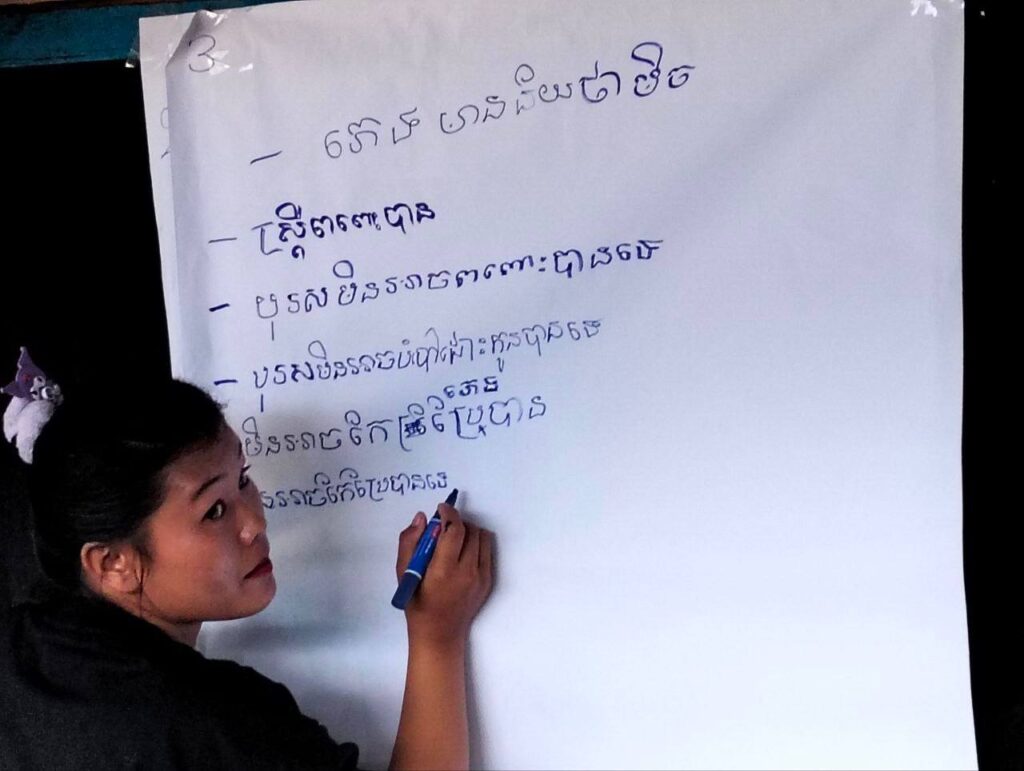 3
- ភេទ មានន័យថាមិច
- ស្ត្រីពពោះបាន
- បុរសមិនអាចពពោះបានទេ
- បុរសមិនអាចបំបៅដោះកូនបានទេ
ភេទ
មិនអាចកែ ប្រែបាន
នអាចកែប្រែបានទេ